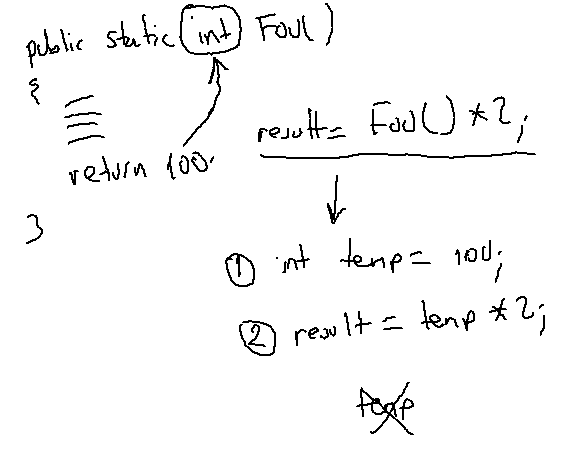 public static int Foo()
{
return 100;
}
result = Foo() * 2;
① int temp = 100;
② result = temp * 2;
temp